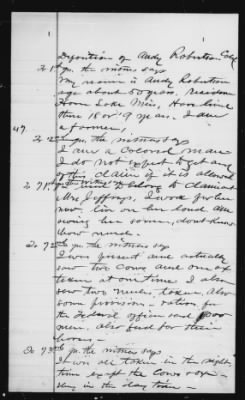 1
Deposition of Andy Robertson Cold
To 1st qu. the witness says
My name is Andy Robertson
age about 50 years. residence
Horn Lake Miss, Have lived
there 18 or 19 years. I am
a farmer,
47.
To 2d qu. the witness says
I am a Colored man
I do not expect to get any
of this claim if it is allowed
To 71st qu. the witness says
I used to belong to claimant
Mrs Jeffrays, I work for her
now, live on her land am
owing her some, dont know
how much.
To 72d qu. the witness says
I was present and actually
saw two cows and one ox
taken at one time I also
saw two mules taken, also
some provisions - ration for
the Federal officer and poor
men, also feed for their
horses -
To 73d qu. the witness says
It was all taken in the night
time except the cows & ox -
they in the day time -